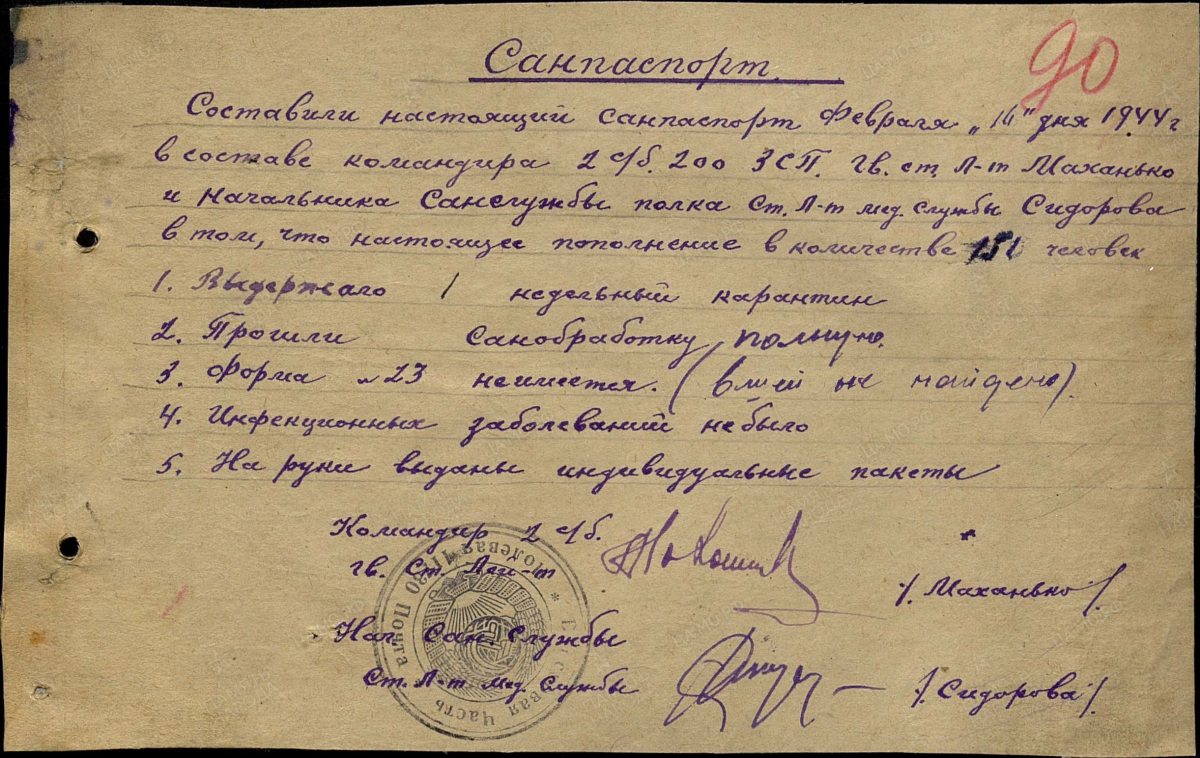 90
Санпаспорт
Составили настоящий санпаспорт Февраля „14" дня 1944 г
в составе командира 2 с/б. 200 ЗСП. гв. ст. Л-т Маханько
и начальника Санслужбы полка Ст. Л-т мед. службы Сидорова
в том, что настоящее пополнение в количестве 151 человек
1. Выдержало 1 недельный карантин
2. Прошли санобработку полную.
3. Форма №23 неимеется. (вшей не найдено)
4. Инфекционных заболеваний небыло
5. На руки выданы индивидуальные пакеты
Командир 2 с/б.
гв. Ст. Лей-т /. Маханько /.
Нач Сан. Службы
Ст. Л-т мед. Службы /Сидорова/.
Полевая Почта
часть